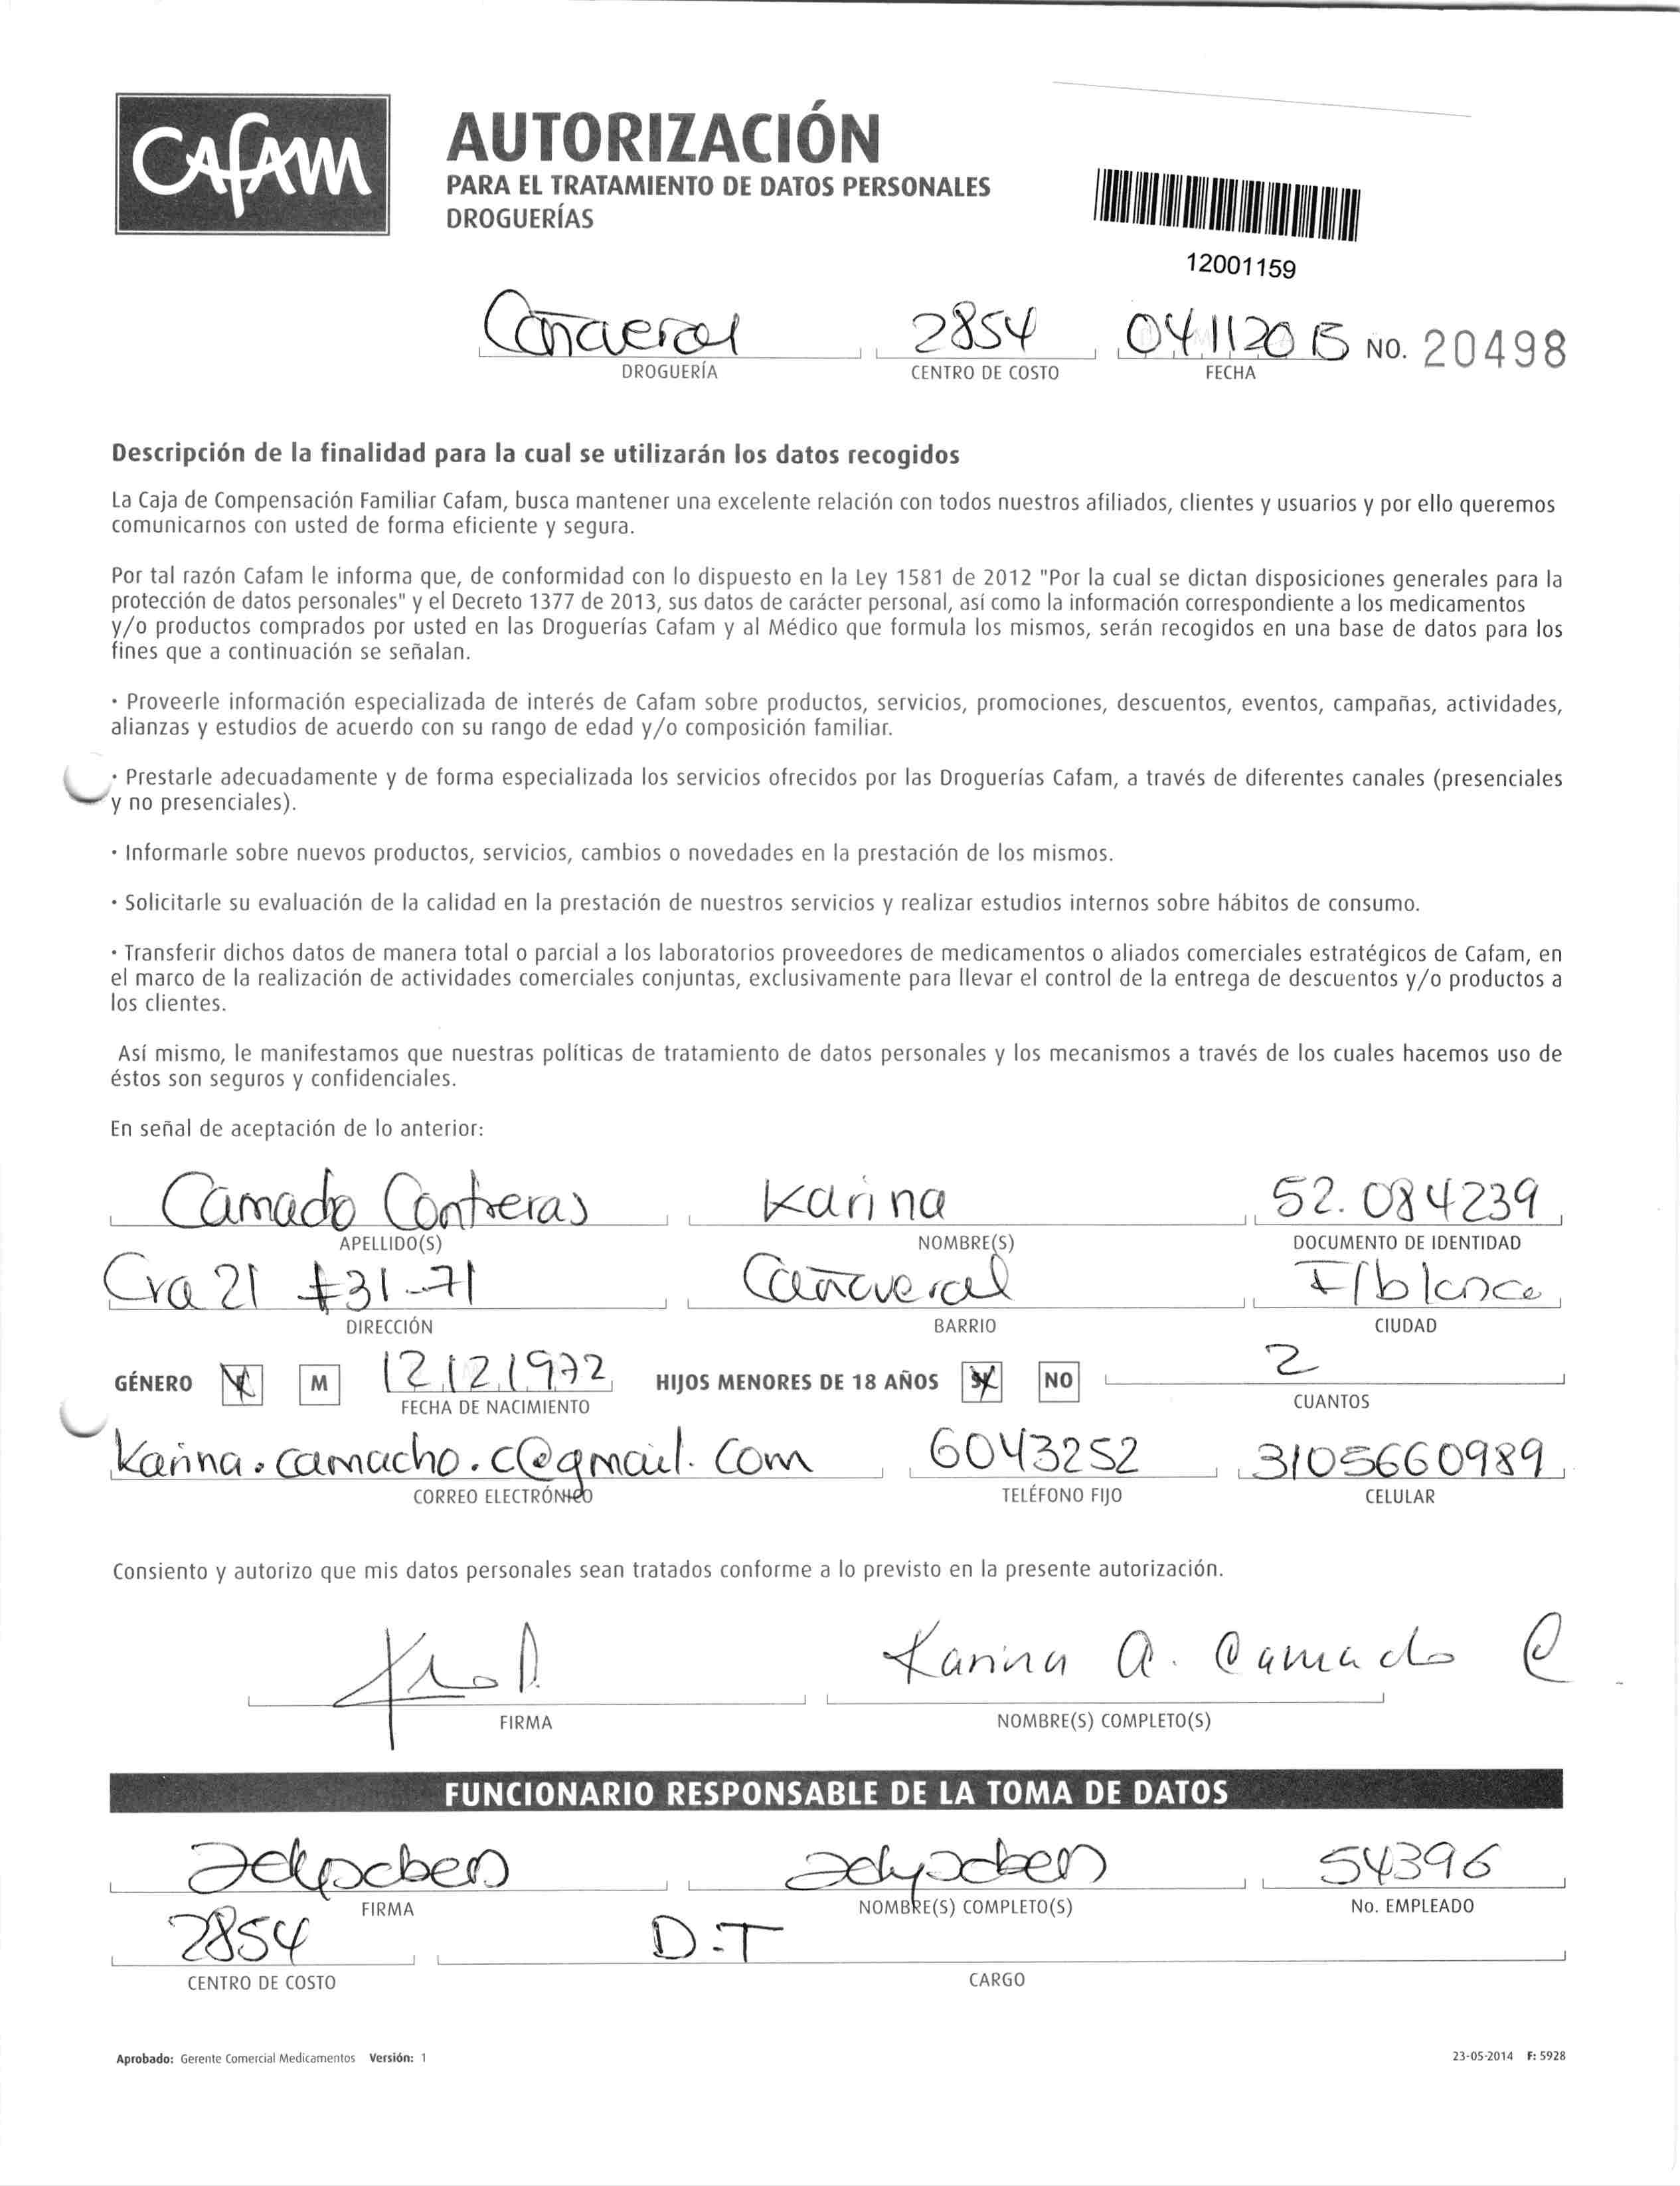 CAFAM
AUTORIZACIÓN
PARA EL TRATAMIENTO DE DATOS PERSONALES
DROGUERÍAS
12001159
Cañaveral 2854 04 11 2015 NO. 20498
DROGUERÍA CENTRO DE COSTO FECHA
Descripción de la finalidad para la cual se utilizarán los datos recogidos
La Caja de Compensación Familiar Cafam, busca mantener una excelente relación con todos nuestros afiliados, clientes y usuarios y por ello queremos
comunicarnos con usted de forma eficiente y segura.
Por tal razón Cafam le informa que, de conformidad con lo dispuesto en la Ley 1581 de 2012 "Por la cual se dictan disposiciones generales para la
protección de datos personales" y el Decreto 1377 de 2013, sus datos de carácter personal, así como la información correspondiente a los medicamentos
y/o productos comprados por usted en las Droguerías Cafam y al Médico que formula los mismos, serán recogidos en una base de datos para los
fines que a continuación se señalan.
• Proveerle información especializada de interés de Cafam sobre productos, servicios, promociones, descuentos, eventos, campañas, actividades,
alianzas y estudios de acuerdo con su rango de edad y/o composición familiar.
• Prestarle adecuadamente y de forma especializada los servicios ofrecidos por las Droguerías Cafam, a través de diferentes canales (presenciales
y no presenciales).
• Informarle sobre nuevos productos, servicios, cambios o novedades en la prestación de los mismos.
• Solicitarle su evaluación de la calidad en la prestación de nuestros servicios y realizar estudios internos sobre hábitos de consumo.
• Transferir dichos datos de manera total o parcial a los laboratorios proveedores de medicamentos o aliados comerciales estratégicos de Cafam, en
el marco de la realización de actividades comerciales conjuntas, exclusivamente para llevar el control de la entrega de descuentos y/o productos a
los clientes.
Así mismo, le manifestamos que nuestras políticas de tratamiento de datos personales y los mecanismos a través de los cuales hacemos uso de
éstos son seguros y confidenciales.
En señal de aceptación de lo anterior:
Camacho Contreras Karina 52.084239
APELLIDO(S) NOMBRE(S) DOCUMENTO DE IDENTIDAD
Cra 21 #31-71 Cañaveral F/blanca
DIRECCIÓN BARRIO CIUDAD
GÉNERO F M 12 12 1972 HIJOS MENORES DE 18 AÑOS SI NO 2
FECHA DE NACIMIENTO CUANTOS
karina.camacho.c@gmail.com 6043252 3105660989
CORREO ELECTRÓNICO TELÉFONO FIJO CELULAR
Consiento y autorizo que mis datos personales sean tratados conforme a lo previsto en la presente autorización.
Karina A. Camacho C
FIRMA NOMBRE(S) COMPLETO(S)
FUNCIONARIO RESPONSABLE DE LA TOMA DE DATOS
54396
FIRMA NOMBRE(S) COMPLETO(S) No. EMPLEADO
2854 D.T
CENTRO DE COSTO CARGO
Aprobado: Gerente Comercial Medicamentos Versión: 1 23-05-2014 F: 5928